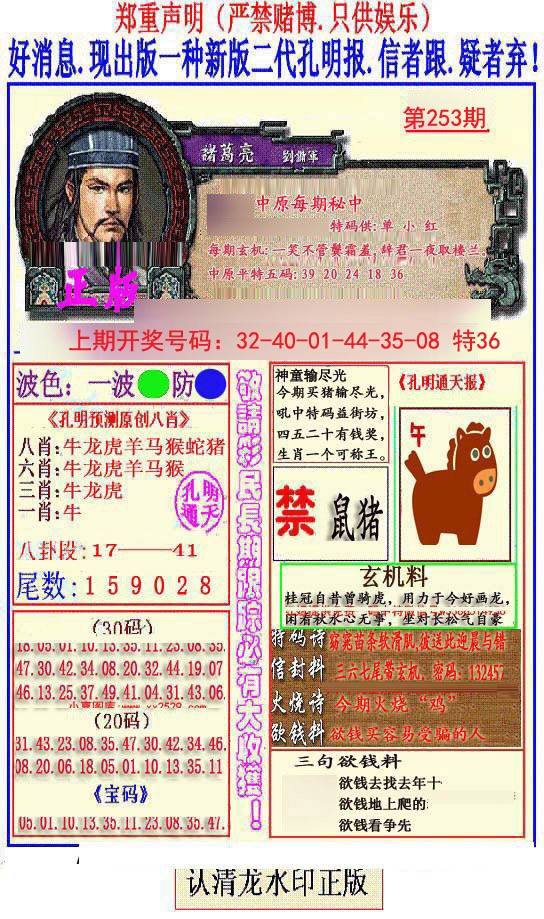 郑重声明（严禁赌博.只供娱乐）
好消息.现出版一种新版二代孔明报.信者跟.疑者弃！
第253期
諸葛亮 劉備軍
中原每期秘中
特码供:单 小 红
每期玄机:一笑不管鬓霜盖,辞君一夜取楼兰.
中原平特五码:39 20 24 18 36
正版
上期开奖号码：32-40-01-44-35-08 特36
波色：一波 防
《孔明预测原创八肖》
八肖:牛龙虎羊马猴蛇猪
六肖:牛龙虎羊马猴
三肖:牛龙虎
一肖:牛
孔明通天
八卦段:17——41
尾数:159028
(30码)
18.05.01.10.13.35.11.23.08.35.
47.30.42.34.08.20.32.44.19.07
46.13.25.37.49.41.04.31.43.06.
(20码)
31.43.23.08.35.47.30.42.34.46.
08.20.06.18.05.01.10.13.35.11
《宝码》
05.01.10.13.35.11.23.08.35.47.
敬請彩民長期跟踪必有大收獲！
神童输尽光
今期买猪输尽光，
吼中特码益街坊，
四五二十有钱奖，
生肖一个可称王。
《孔明通天报》
午
禁 鼠猪
玄机料
桂冠自昔曾骑虎，用力于今好画龙，
闲着秋水心无事，坐对长松气自豪
特码诗 窈窕苗条软滑肌,彼送此迎晨与错
信封料 三六七尾带玄机，密码：132457
火烧诗 今期火烧“鸡”
欲钱料 欲钱买容易受骗的人
三句欲钱料
欲钱去找去年十
欲钱地上爬的
欲钱看争先
认清龙水印正版